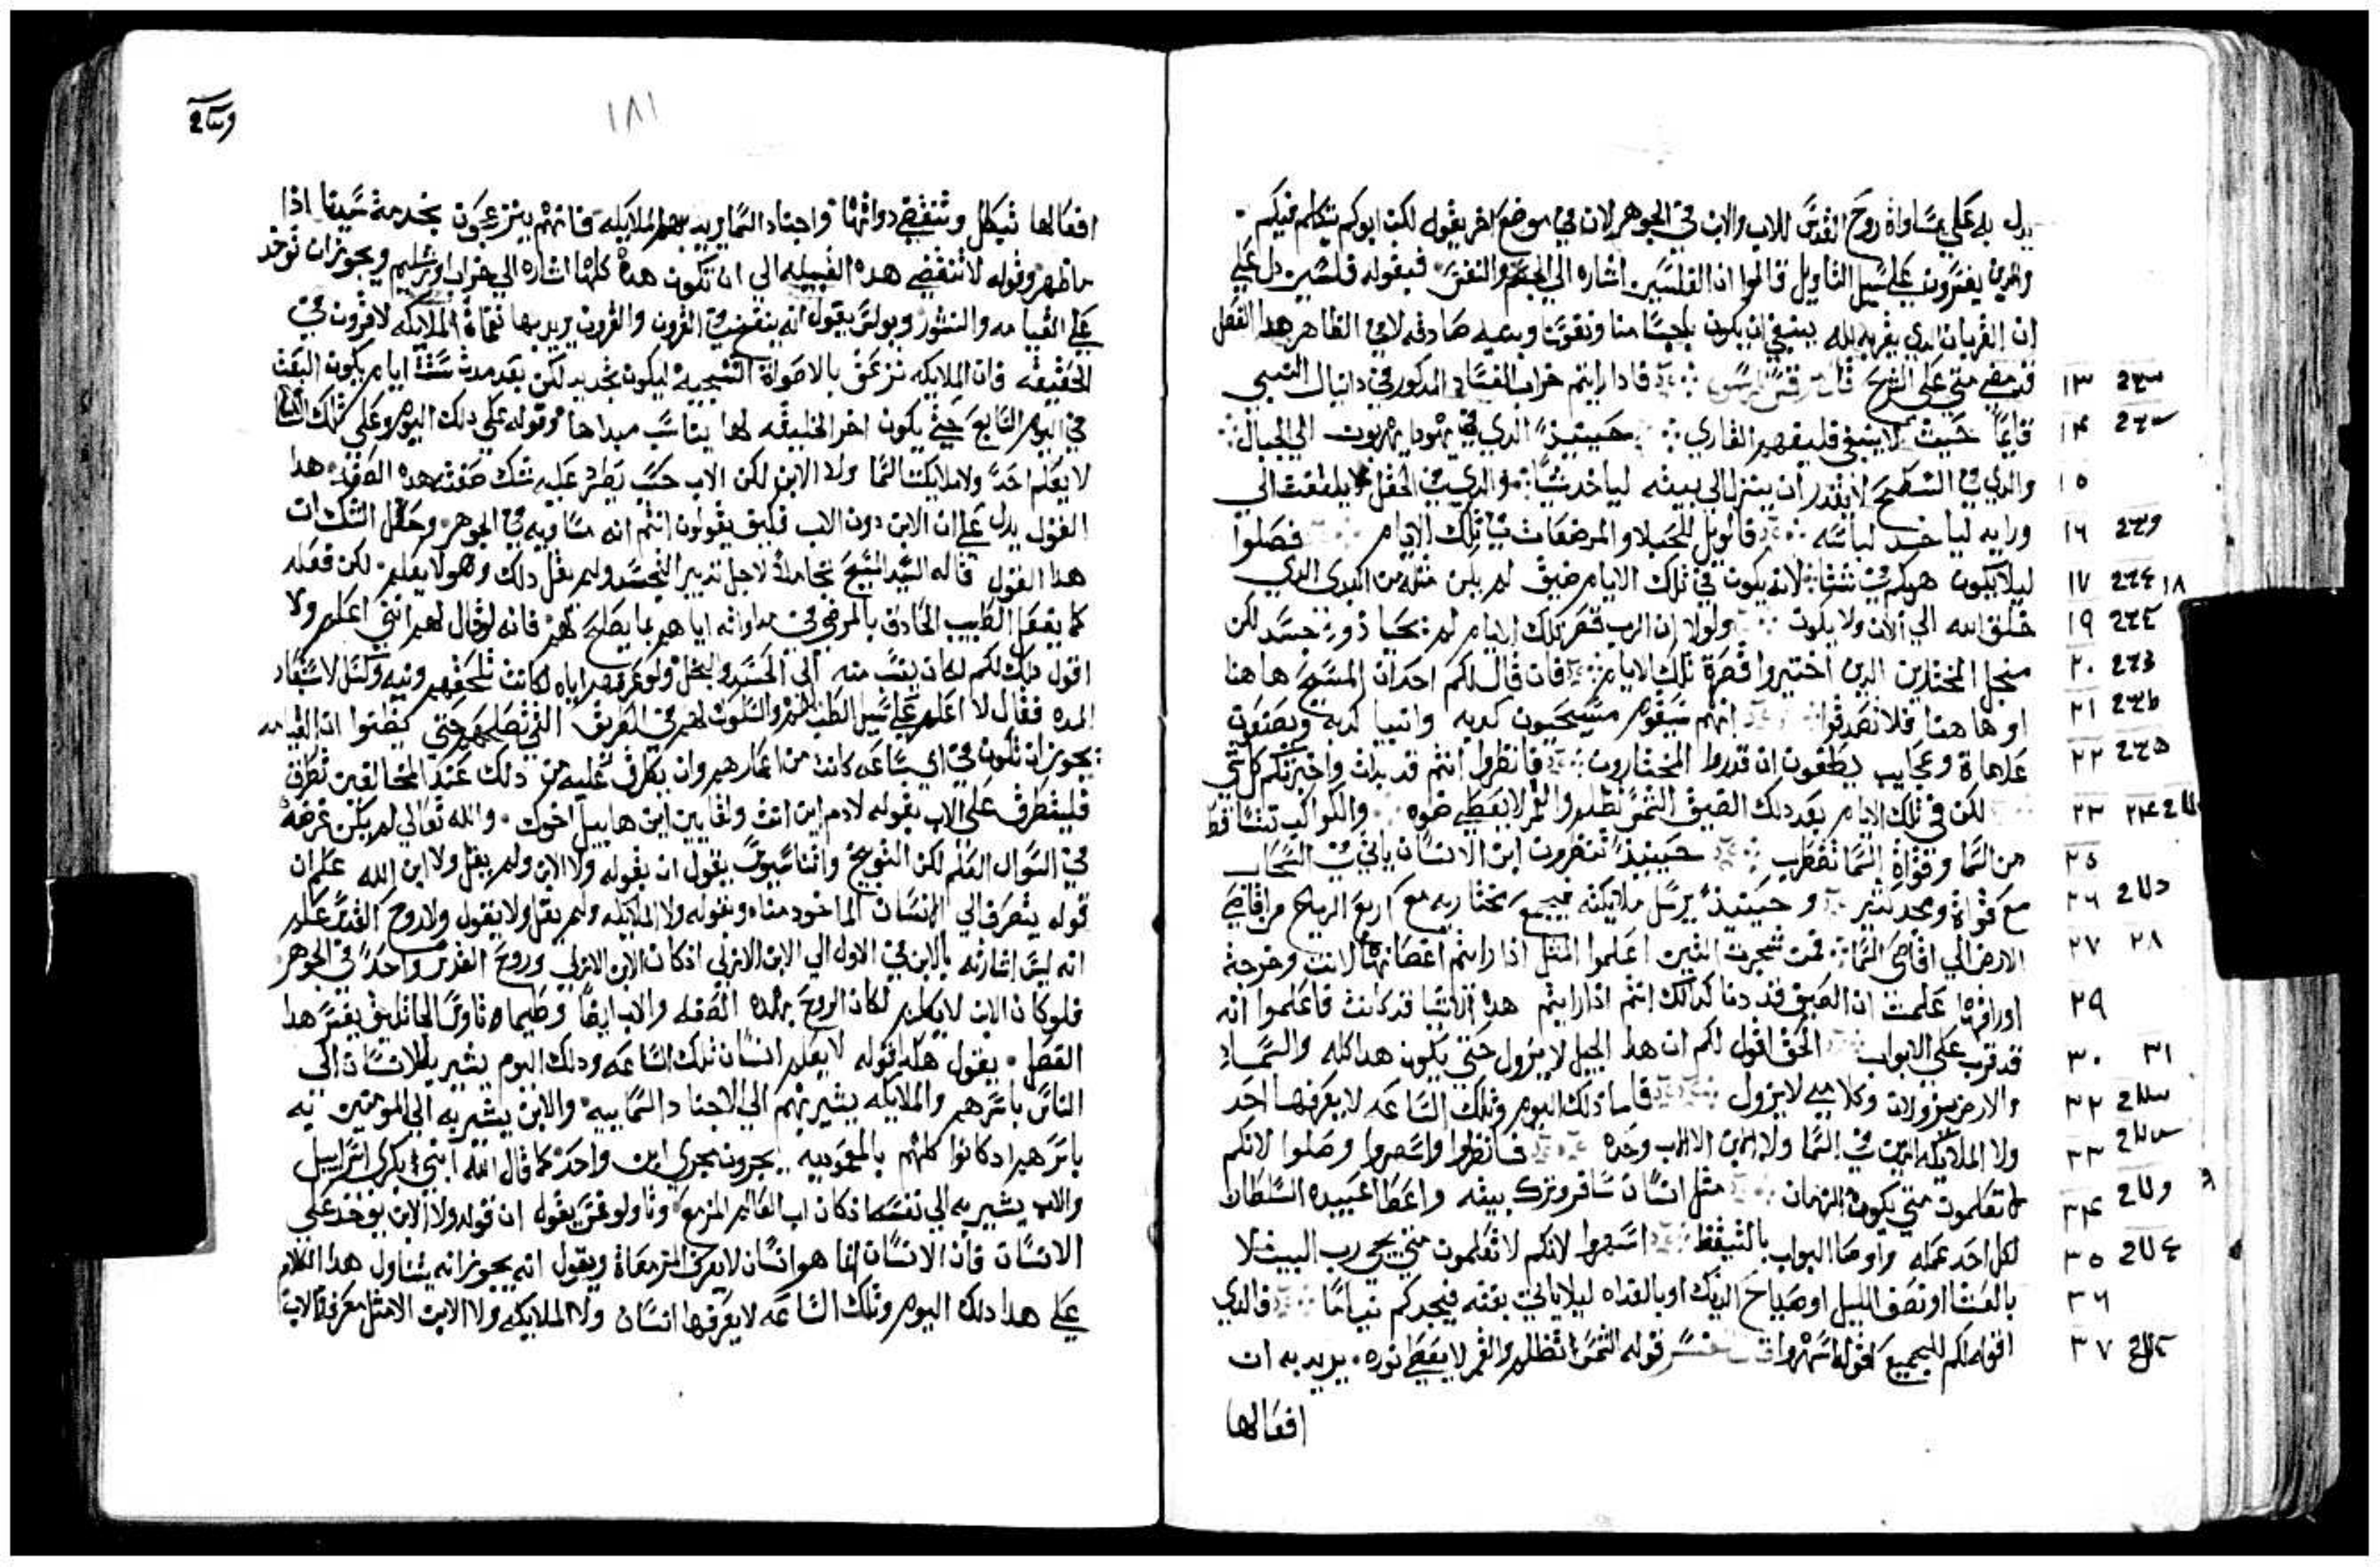 يدل به على مساواة روح القدس للاب والابن في الجوهر لان في موضع اخر يقوله لكن ابوكم يتكلم فيكم
والدين يفسرون على سبيل التاويل قالوا ان الفلسين اشاره الي الجسم والنفس فبقوله فلسين دل علي
ان القربان الدي يقربه لله ينبغي ان يكون باجسامنا ونفوسنا وبنيه صادقه لا في الظاهر هدا الفصل
١٣ قد مضي متي علي الشرح فادا رايتم خراب الفساد المدكور في دانيال النبي
١٤ قايما حيث لا ينبغي فليفهم القاري حينيذ الدي في يهودا يهربون الي الجبال
١٥ والدي في السطح لا يقدر ان ينزل الي بيته لياخد شيا والدي في الحقل لا يلتفت الي
١٦ ورايه لياخد لباسه فالويل للحبلا والمرضعات في تلك الايام فصلوا
١٧ ١٨ ليلا يكون هربكم في شتا لانه يكون في تلك الايام ضيق لم يكن مثله من البدي الدي
١٩ خلق الله الي الان ولا يكون ولولا ان الرب قصر تلك الايام لم يحيا ذو جسد لكن
٢٠ منجل المختارين الدين اختيروا قصرة تلك الايام فان قال لكم احد ان المسيح هاهنا
٢١ او هاهنا فلا تصدقوا انهم سيقوم مسيحيون كدبه وانبيا كدبه ويصنعون
٢٢ علاماة وعجايب يطغون ان قدروا المختارون فانظروا انتم قد بدات واخبرتكم كلشي
٢٣ ٢٤ لكن في تلك الايام بعد دلك الضيق الشمس تظلم والقمر لا يعطي ضوه والكواكب تتساقط
٢٥ من السما وقواة السما تضطرب حينيذ تنظرون ابن الانسان ياتي في السحاب
٢٦ مع قواة ومجد كثير وحينيذ يرسل ملايكته فيجمع مختاريه مع اربع الرياح من اقاصي
٢٧ ٢٨ الارض الي اقاصي السما فمن شجرت التين اعلموا المثل اذا رايتم اغصانها لانت وخرجة
٢٩ اوراقها علمت ان الصيف قد دنا كدالك انتم اذا رايتم هده الاشيا قد كانت فاعلموا انه
٣٠ ٣١ قد قرب علي الابواب الحق اقول لكم ان هدا الجيل لا يزول حتي يكون هدا كله والسما
٣٢ والارض يزولان وكلامي لا يزول فاما ذلك اليوم وتلك الساعه لا يعرفها احد
٣٣ ولا الملايكه الدين في السما ولا الابن الا الاب وحده فانظروا واسهروا وصلوا لانكم
٣٤ لا تعلمون متي يكون الزمان مثل انسان سافر وترك بيته واعطا عبيده السلطان
٣٥ لكل احد عمله واوصا البواب بالتيقظ اسهروا لانكم لا تعلمون متي يجي رب البيت
٣٦ بالعشا او نصف الليل او صياح الديك او بالغداه ليلا ياتي بغته فيجدكم نياما فالدي
٣٧ اقوله لكم للجميع اقوله اسهروا قوله الشمس تظلم والقمر لا يعطي نوره يريد به ان
افعالها
١٨١
افعالها تبطل وتنقضي دواتها واجناد السما يريد بهم الملايكه فانهم ينزعجون بخدمة سيدنا اذا
ما ظهر وقوله لا تنقضي هده القبيله الي ان تكون هده كلها اشاره الي خراب اورشليم ويجوز ان توخد
علي القيامه والنشور وبولس يقول انه ينفخ في القرون والقرون يريد بها نغماة الملايكه لا قرون في
الحقيقه فان الملايكه تزعق بالاصواة ليكون تجديد لكن بعد مدت ستة ايام يكون البعث
في اليوم السابع حتي يكون اخر الخليقه لها يناسب مبداها وقوله علي دلك اليوم وعلي تلك الساعه
لا يعلم احد ولا ملايكت السما ولا الابن لكن الاب حسب يطر عليه شك صفته هده الصفه هدا
القول يدل علي ان الابن دون الاب فكيف يقولون انتم انه مساويه في الجوهر وحل الشك ان
هذا القول قاله السيد المسيح لاجل تدبير التجسد ولم يقل دلك وهو لا يعلم لكن فعله
كما يفعل الطبيب الحادق بالمرضي في مداواته اياهم بما يصلح لهم فانه لو قال لهم انني اعلم ولا
اقول دلك لكم لكان ينسب منه الي الحسد والبخل ولو عرفهم اياه لكانت تلحقهم ونيه وكسل لاستبعاد
المده فقال لا اعلم علي سبيل الطب لهم والسلوك لهم في الطريق التي تصلحهم حتي يظنوا ان القيامه
يجوز ان تكون في اي ساعه كانت من اعمارهم وان يطرق عليه من دلك عند المخالفين تطرق
فليتطرق علي الاب بقوله لادم اين انت ولقايين اين هابيل اخوك والله تعالي لم يكن غرضه
في السوال العلم لكن التوبيخ واتناسيوس يقول ان بقوله ولا الابن ولم يقل ولا ابن الله علم ان
قوله يتصرف الي الانسان الماخود منا وبقوله ولا الملايكه ولم يقل ولا يقول ولا روح القدس علم
انه ليس اشارته بالابن في الاول الي الابن الازلي اذ كان الابن الازلي وروح القدس واحد في الجوهر
فلو كان الابن لا يعلم لكان الروح بهده الصفه والاب ايضا وطيماتاوس الجاثليق يفسر هدا
الفصل يقول هكدا قوله لا يعلم انسان تلك الساعه ودلك اليوم يشير بالانسان الي
الناس باسرهم والملايكه يشير بهم الي الاجناد السماييه والابن يشير به الي المومنين به
باسرهم اد كانوا كلهم بالمعموديه يجرون مجري ابن واحد كما قال الله ابني بكري اسراييل
والاب يشير به الي نفسه اذ كان اب العالم المزمع وتاولوغس يقول ان قوله ولا الابن يوخد علي
الانسان فان الانسان بما هو انسان لا يعرف المزمعاة ويقول انه يجوز انه يتناول هدا الكلام
علي هدا دلك اليوم وتلك الساعه لا يعرفها انسان ولا الملايكه ولا الابن الا مثل معرفة الاب